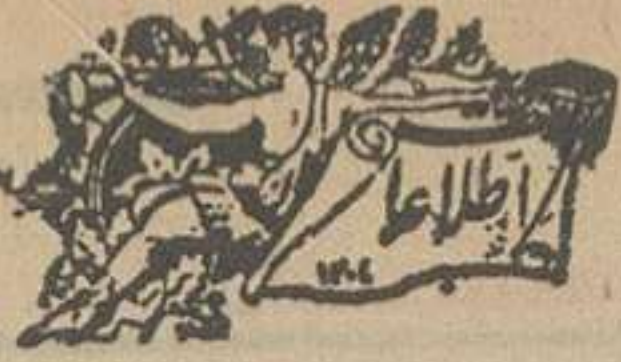 اطلاعا
۱۳۰٤